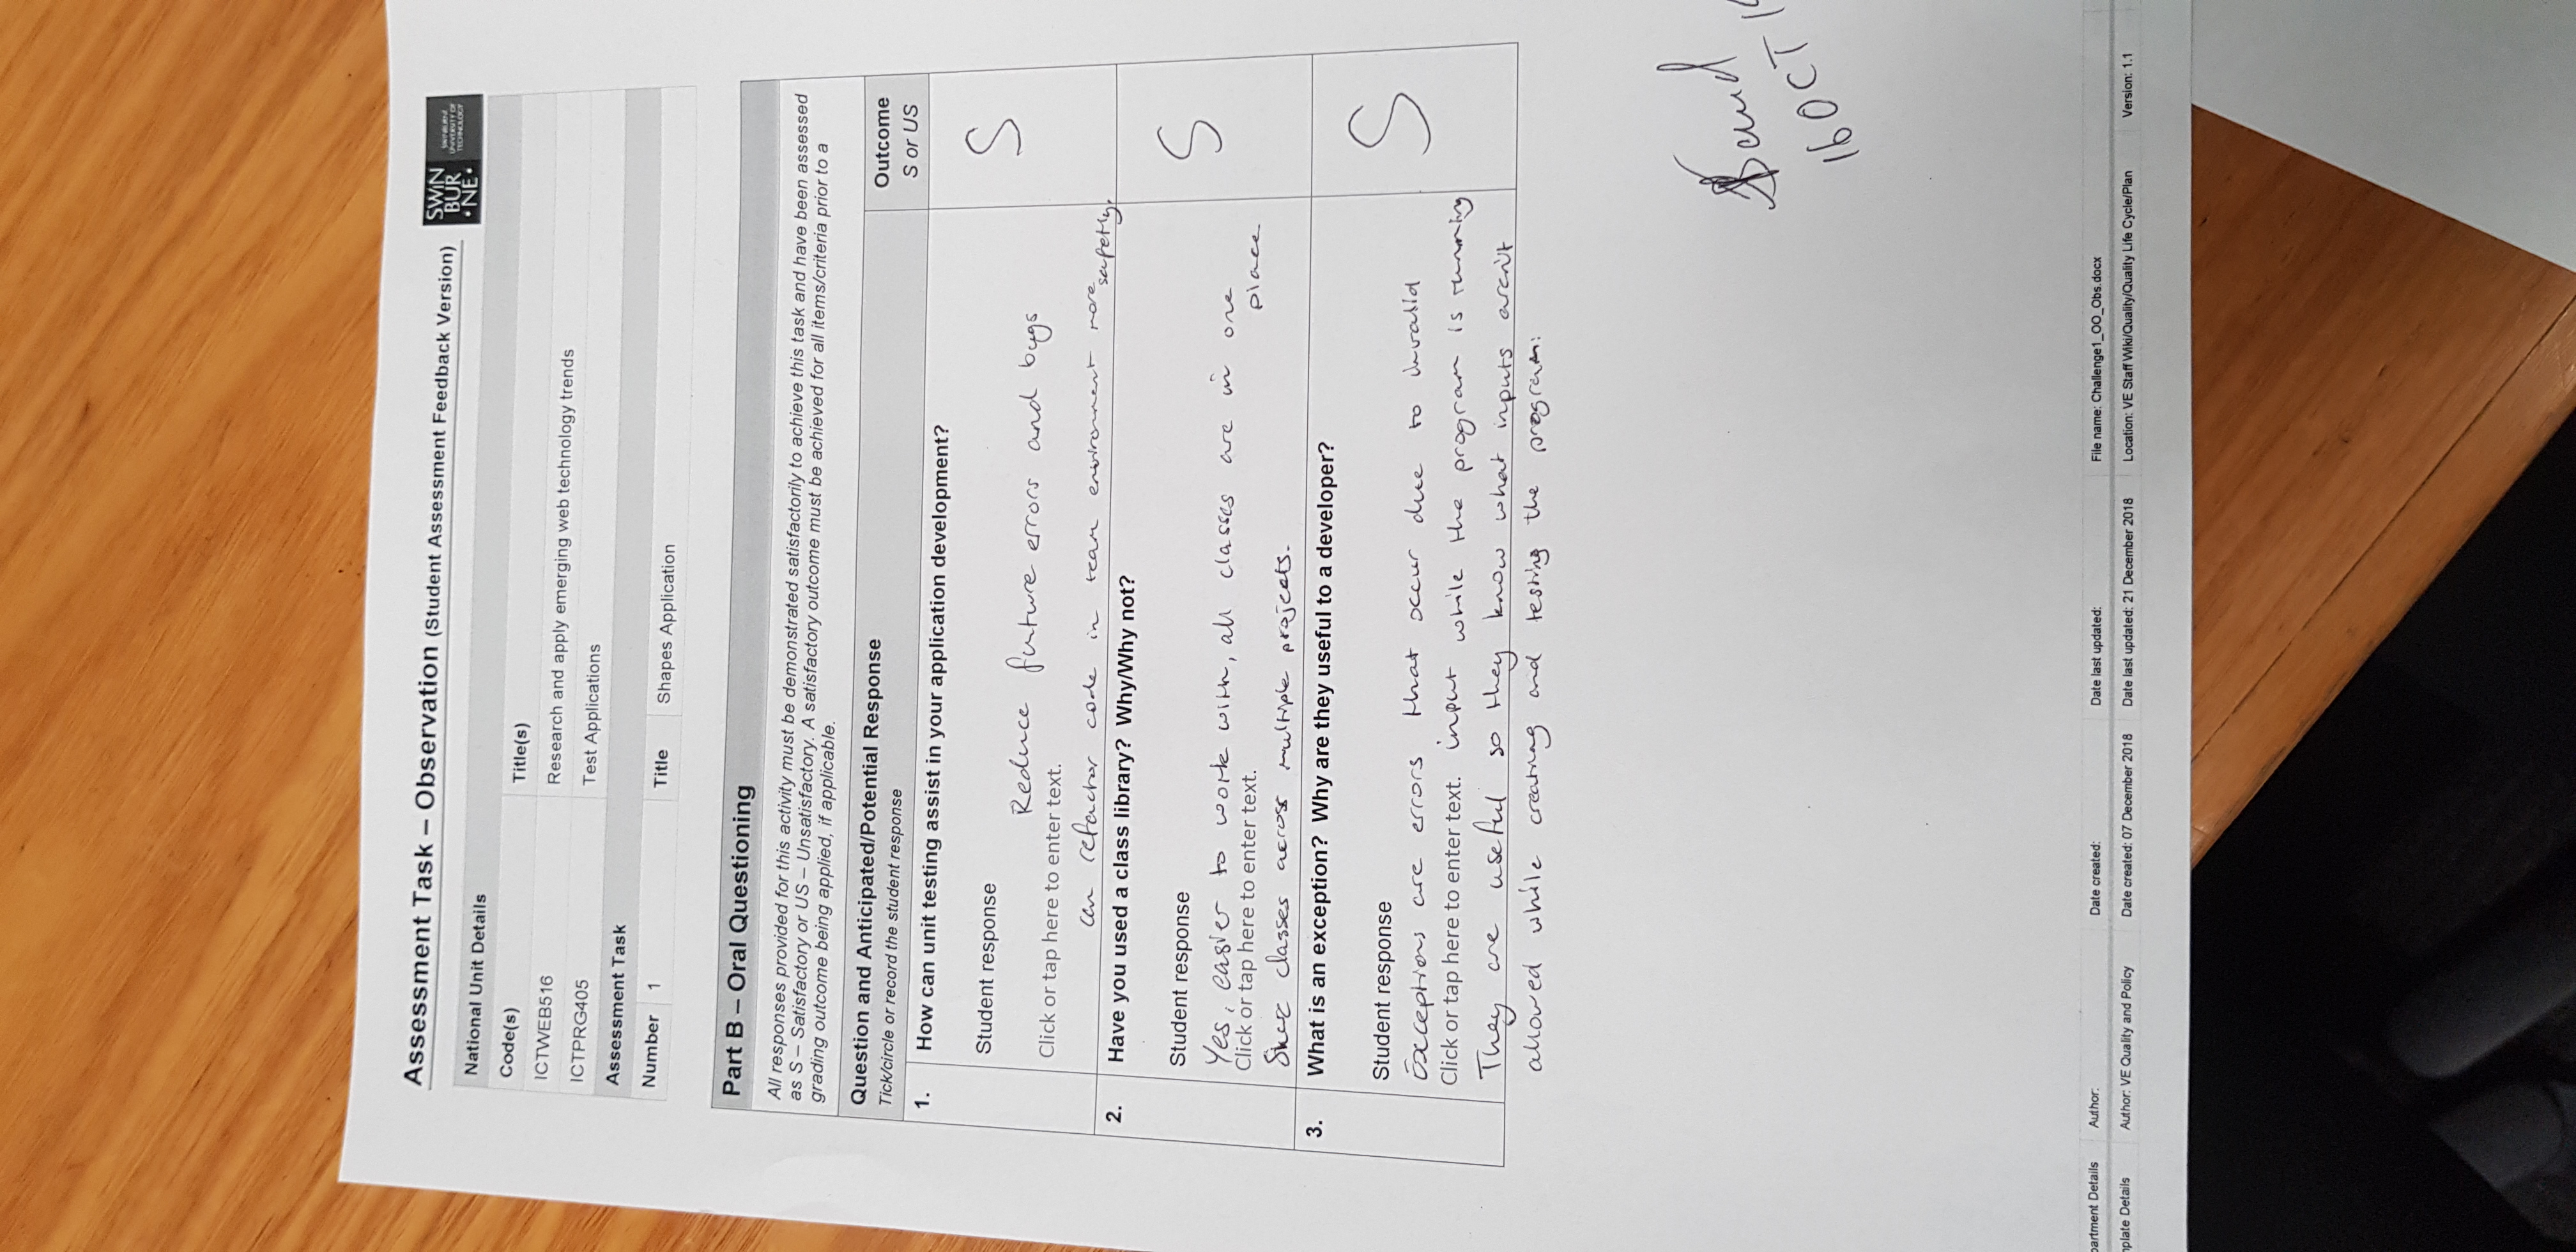 Assessment Task – Observation (Student Assessment Feedback Version)
SWIN
BUR
•NE•
SWINBURNE
UNIVERSITY OF
TECHNOLOGY
National Unit Details
Code(s) Title(s)
ICTWEB516 Research and apply emerging web technology trends
ICTPRG405 Test Applications
Assessment Task
Number 1 Title Shapes Application
Part B – Oral Questioning
All responses provided for this activity must be demonstrated satisfactorily to achieve this task and have been assessed
as S – Satisfactory or US – Unsatisfactory. A satisfactory outcome must be achieved for all items/criteria prior to a
grading outcome being applied, if applicable.
Question and Anticipated/Potential Response Outcome
Tick/circle or record the student response S or US
1. How can unit testing assist in your application development?
S
Student response
Reduce furture errors and bugs
Click or tap here to enter text.
can refactor code in team environment more safetly.
2. Have you used a class library? Why/Why not?
S
Student response
Yes, easier to work with, all classes are in one
Click or tap here to enter text. place
Share classes across multiple projects.
3. What is an exception? Why are they useful to a developer?
S
Student response
Exceptions are errors that occur due to invalid
Click or tap here to enter text. input while the program is running
They are useful so they know what inputs aren't
allowed while creating and testing the program.
16 OCT
partment Details Author: Date created: Date last updated: File name: Challenge1_OO_Obs.docx
mplate Details Author: VE Quality and Policy Date created: 07 December 2018 Date last updated: 21 December 2018 Location: VE Staff Wiki/Quality/Quality Life Cycle/Plan Version: 1.1